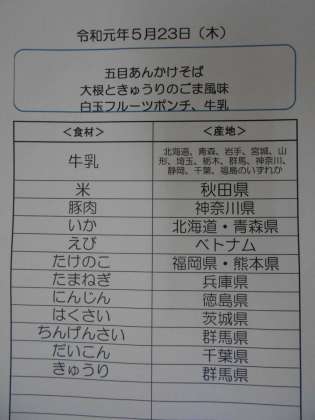 令和元年５月２３日（木）
五目あんかけそば
大根ときゅうりのごま風味
白玉フルーツポンチ、牛乳
＜食材＞ ＜産地＞
牛乳 北海道、青森、岩手、宮城、山
形、埼玉、栃木、群馬、神奈川、
静岡、千葉、福島のいずれか
米 秋田県
豚肉 神奈川県
いか 北海道・青森県
えび ベトナム
たけのこ 福岡県・熊本県
たまねぎ 兵庫県
にんじん 徳島県
はくさい 茨城県
ちんげんさい 群馬県
だいこん 千葉県
きゅうり 群馬県